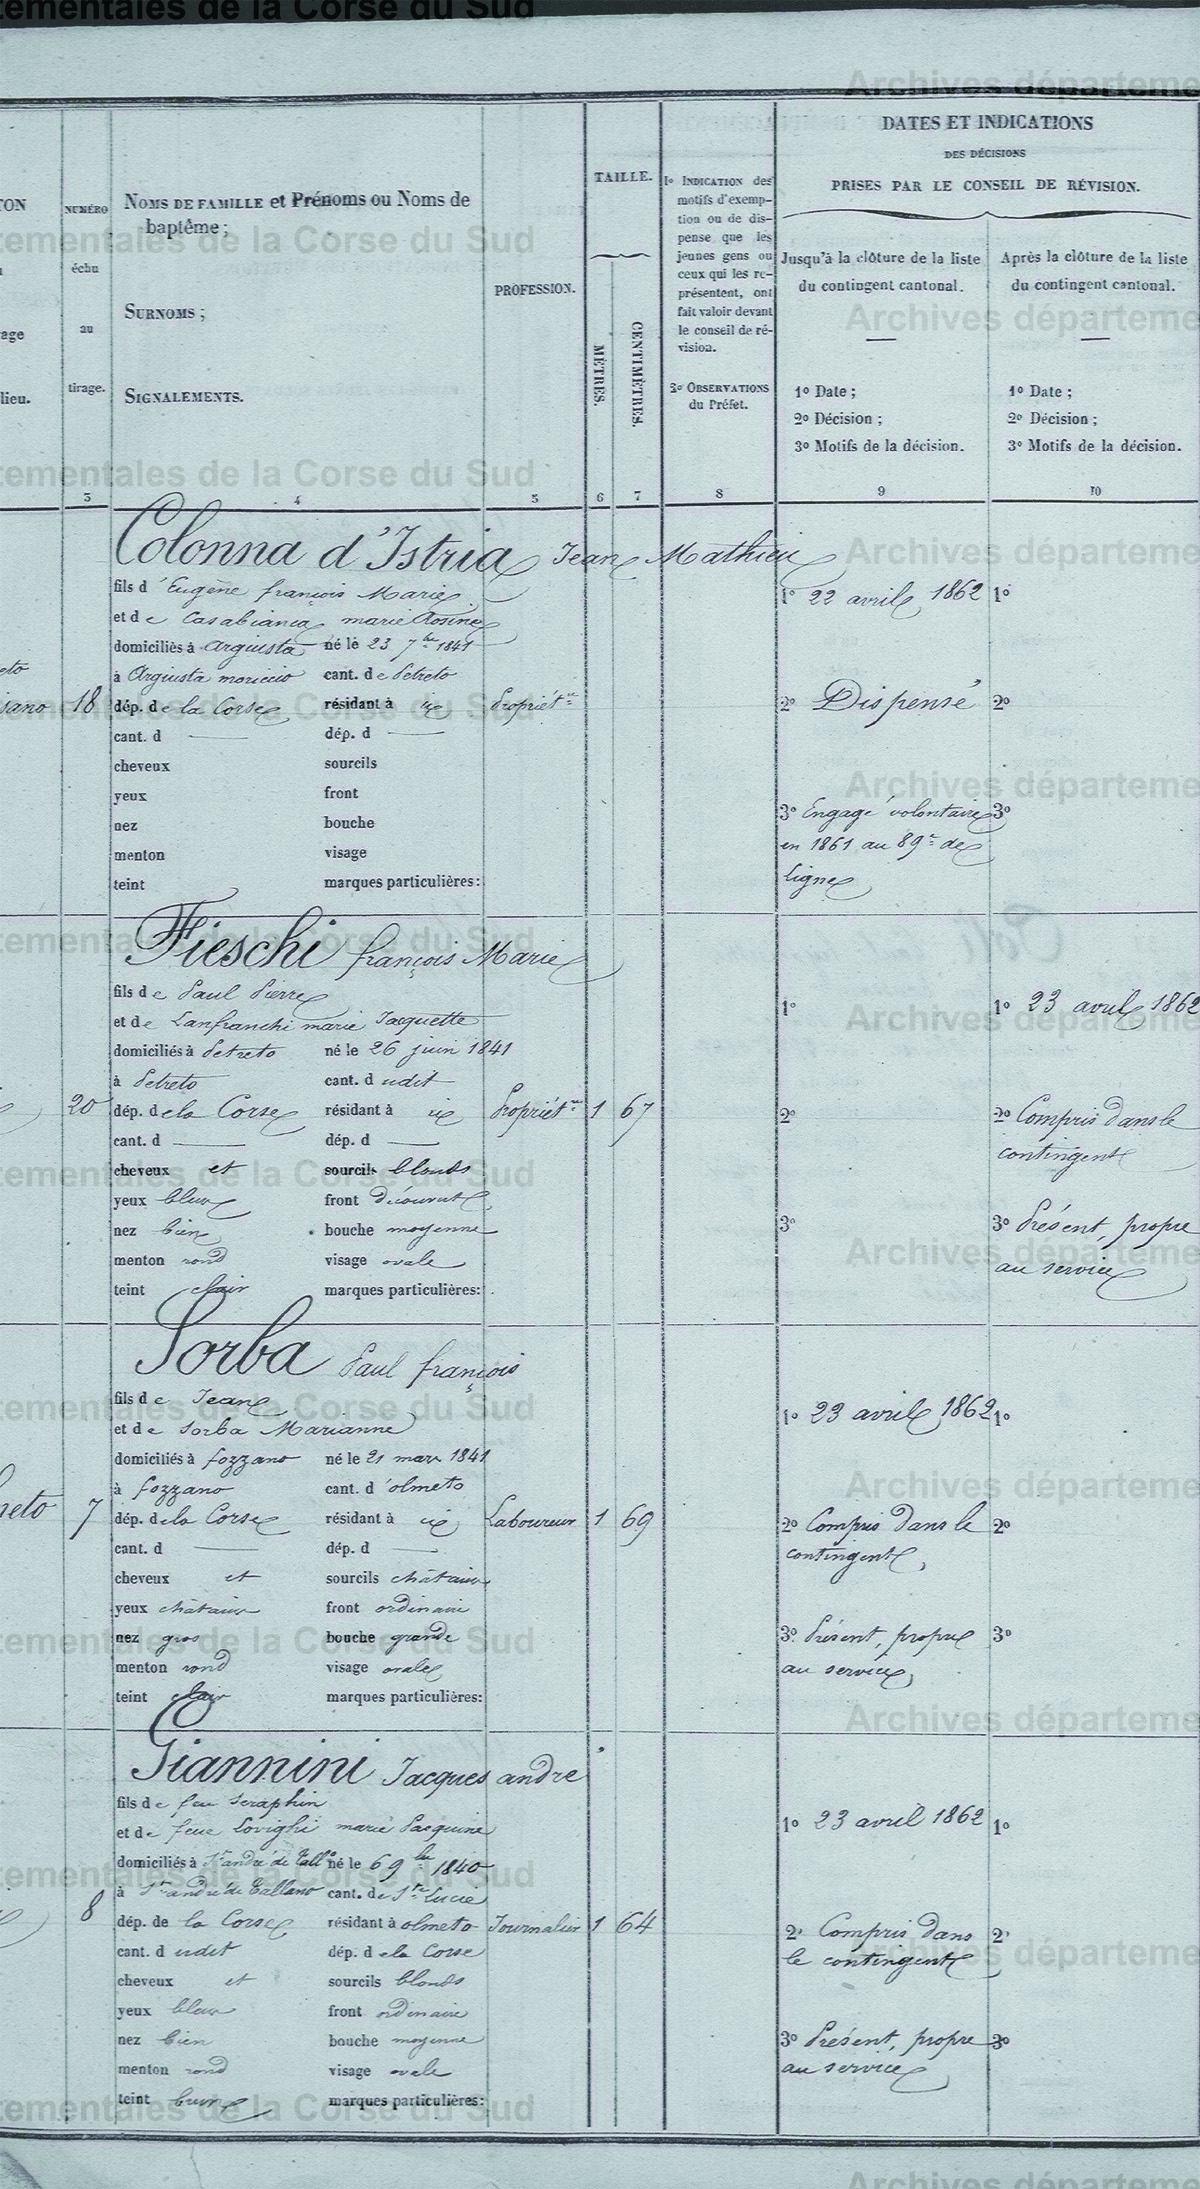 tementales de la Corse du Sud
Archives départeme
TON
age
lieu.
NUMÉRO
échu
au
tirage.
3
NOMS DE FAMILLE et Prénoms ou Noms de
baptême;
SURNOMS;
SIGNALEMENTS.
4
PROFESSION.
5
TAILLE.
MÈTRES.
CENTIMÈTRES.
6 7
1º INDICATION des
motifs d'exemp-
tion ou de dis-
pense que les
jeunes gens ou
ceux qui les re-
présentent, ont
fait valoir devant
le conseil de ré-
vision.
2º OBSERVATIONS
du Préfet.
8
DATES ET INDICATIONS
DES DÉCISIONS
PRISES PAR LE CONSEIL DE RÉVISION.
Jusqu'à la clôture de la liste
du contingent cantonal.
1º Date;
2º Décision;
3º Motifs de la décision.
9
Après la clôture de la liste
du contingent cantonal.
1º Date;
2º Décision;
3º Motifs de la décision.
10
Colonna d'Istria Jean Mathieu
fils d'Eugène françois Marie
et de Casabianca marie Rosine
domiciliés à Argiusta né le 23 7bre 1841
à Argiusta moriccio cant. de Petreto
18 dép. de la Corse résidant à ici Propriétre
cant. d dép. d
cheveux sourcils
yeux front
nez bouche
menton visage
teint marques particulières:
1º 22 avril 1862 1º
2º Dispensé 2º
3º Engagé volontaire 3º
en 1861 au 89e de
ligne
Fieschi françois Marie
fils de Paul Pierre
et de Lanfranchi marie Jacquette
domiciliés à Petreto né le 26 juin 1841
à Petreto cant. d udit
20 dép. de la Corse résidant à ici Propriétre 1 67
cant. d dép. d
cheveux et sourcils blonds
yeux bleux front découvert
nez bien bouche moyenne
menton rond visage ovale
teint clair marques particulières:
1º 1º 23 avril 1862
2º 2º Compris dans le
contingent
3º 3º Présent, propre
au service
Sorba Paul françois
fils de Jean
et de Sorba Marianne
domiciliés à fozzano né le 21 mars 1841
à fozzano cant. d'olmeto
7 dép. de la Corse résidant à ici Laboureur 1 69
cant. d dép. d
cheveux et sourcils châtains
yeux châtains front ordinaire
nez gros bouche grande
menton rond visage ovale
teint clair marques particulières:
1º 23 avril 1862 1º
2º Compris dans le 2º
contingent
3º Présent, propre 3º
au service
Giannini Jacques andré
fils de feu Seraphin
et de feue Lovighi marie Pasquine
domiciliés à St andré de Tallo né le 6 9bre 1840
à St andré de Tallano cant. de Ste Lucie
8 dép. de la Corse résidant à olmeto Journalier 1 64
cant. d udit dép. de la Corse
cheveux et sourcils blonds
yeux bleux front ordinaire
nez bien bouche moyenne
menton rond visage ovale
teint brun marques particulières:
1º 23 avril 1862 1º
2º Compris dans 2º
le contingent
3º Présent, propre 3º
au service